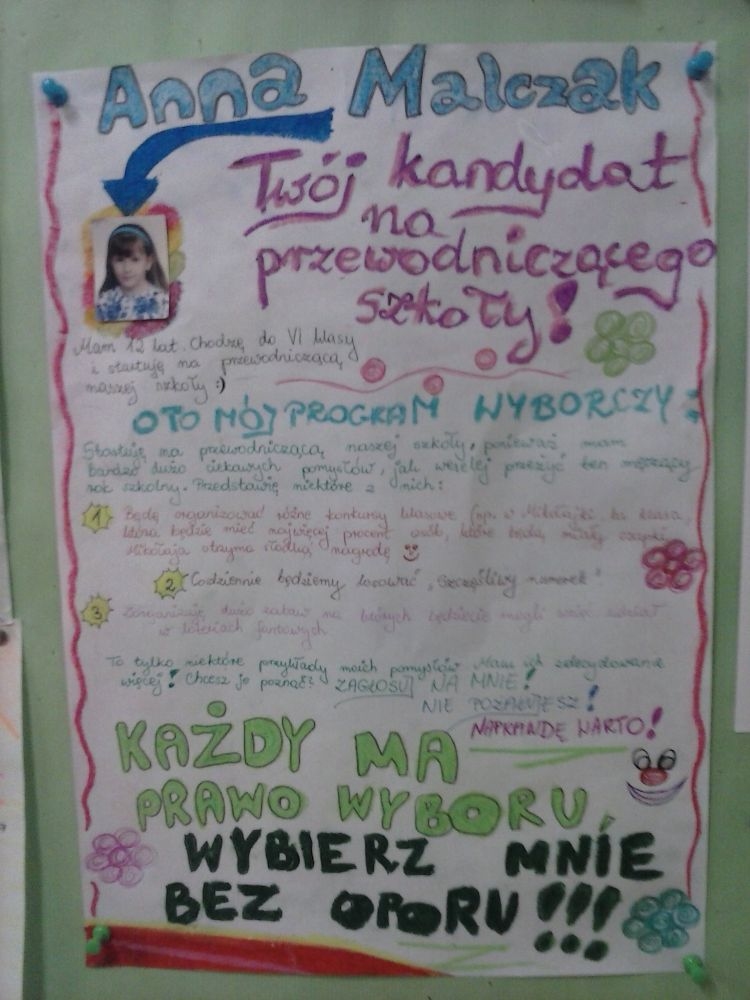 Anna Malczak
Twój kandydat
na
przewodniczącego
szkoły!
Mam 12 lat. Chodzę do VI klasy
i startuję na przewodniczącą
naszej szkoły :)
OTO MÓJ PROGRAM WYBORCZY:
Startuję na przewodniczącą naszej szkoły, ponieważ mam
bardzo dużo ciekawych pomysłów, jak weselej przeżyć ten męczący
rok szkolny. Przedstawię niektóre z nich:
1 Będę organizować różne konkursy klasowe (np. w Mikołajki, klasa,
która będzie mieć najwięcej procent osób, które będą miały czapki
Mikołaja otrzyma słodką nagrodę
2 Codziennie będziemy losować „Szczęśliwy numerek"
3 Zorganizuję dużo zabaw na których będziecie mogli wziąć udział
w loteriach fantowych
To tylko niektóre przykłady moich pomysłów Mam ich zdecydowanie
więcej! Chcesz je poznać? ZAGŁOSUJ NA MNIE!
NIE POŻAŁUJESZ!
NAPRAWDĘ WARTO!
KAŻDY MA
PRAWO WYBORU,
WYBIERZ MNIE
BEZ OPORU!!!